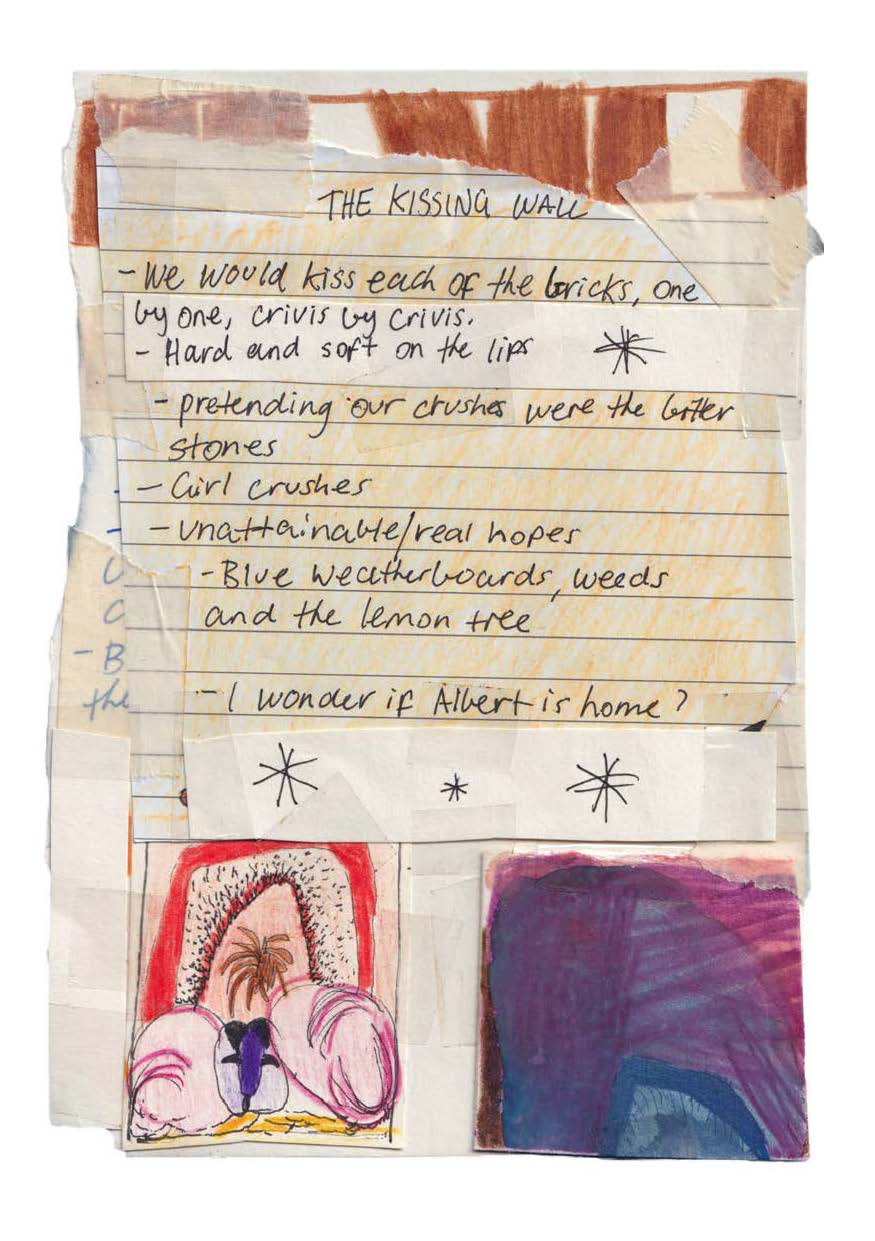 THE KISSING WALL
- We would kiss each of the bricks, one
by one, crivis by crivis.
- Hard and soft on the lips
- pretending our crushes were the bitter
stones
- Girl crushes
- unattainable/real hopes
- Blue weatherboards, weeds
and the lemon tree
- B
the
- I wonder if Albert is home?